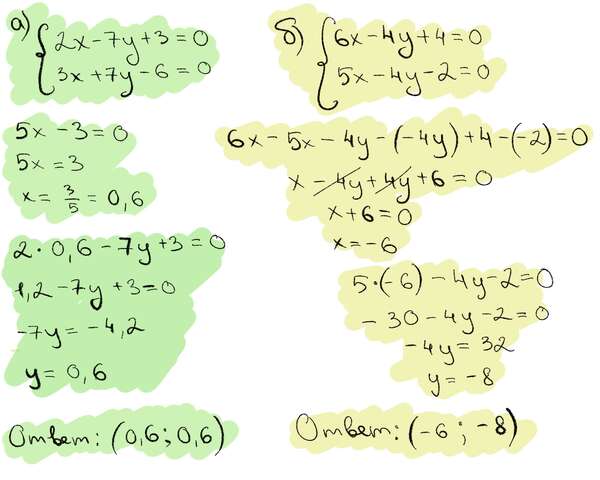 а) { 2x - 7y + 3 = 0
3x + 7y - 6 = 0
5x - 3 = 0
5x = 3
x = 3/5 = 0,6
2 · 0,6 - 7y + 3 = 0
1,2 - 7y + 3 = 0
-7y = -4,2
y = 0,6
Ответ: (0,6 ; 0,6)
б) { 6x - 4y + 4 = 0
5x - 4y - 2 = 0
6x - 5x - 4y - (-4y) + 4 - (-2) = 0
x - 4y + 4y + 6 = 0
x + 6 = 0
x = -6
5 · (-6) - 4y - 2 = 0
- 30 - 4y - 2 = 0
-4y = 32
y = -8
Ответ: (-6 ; -8)